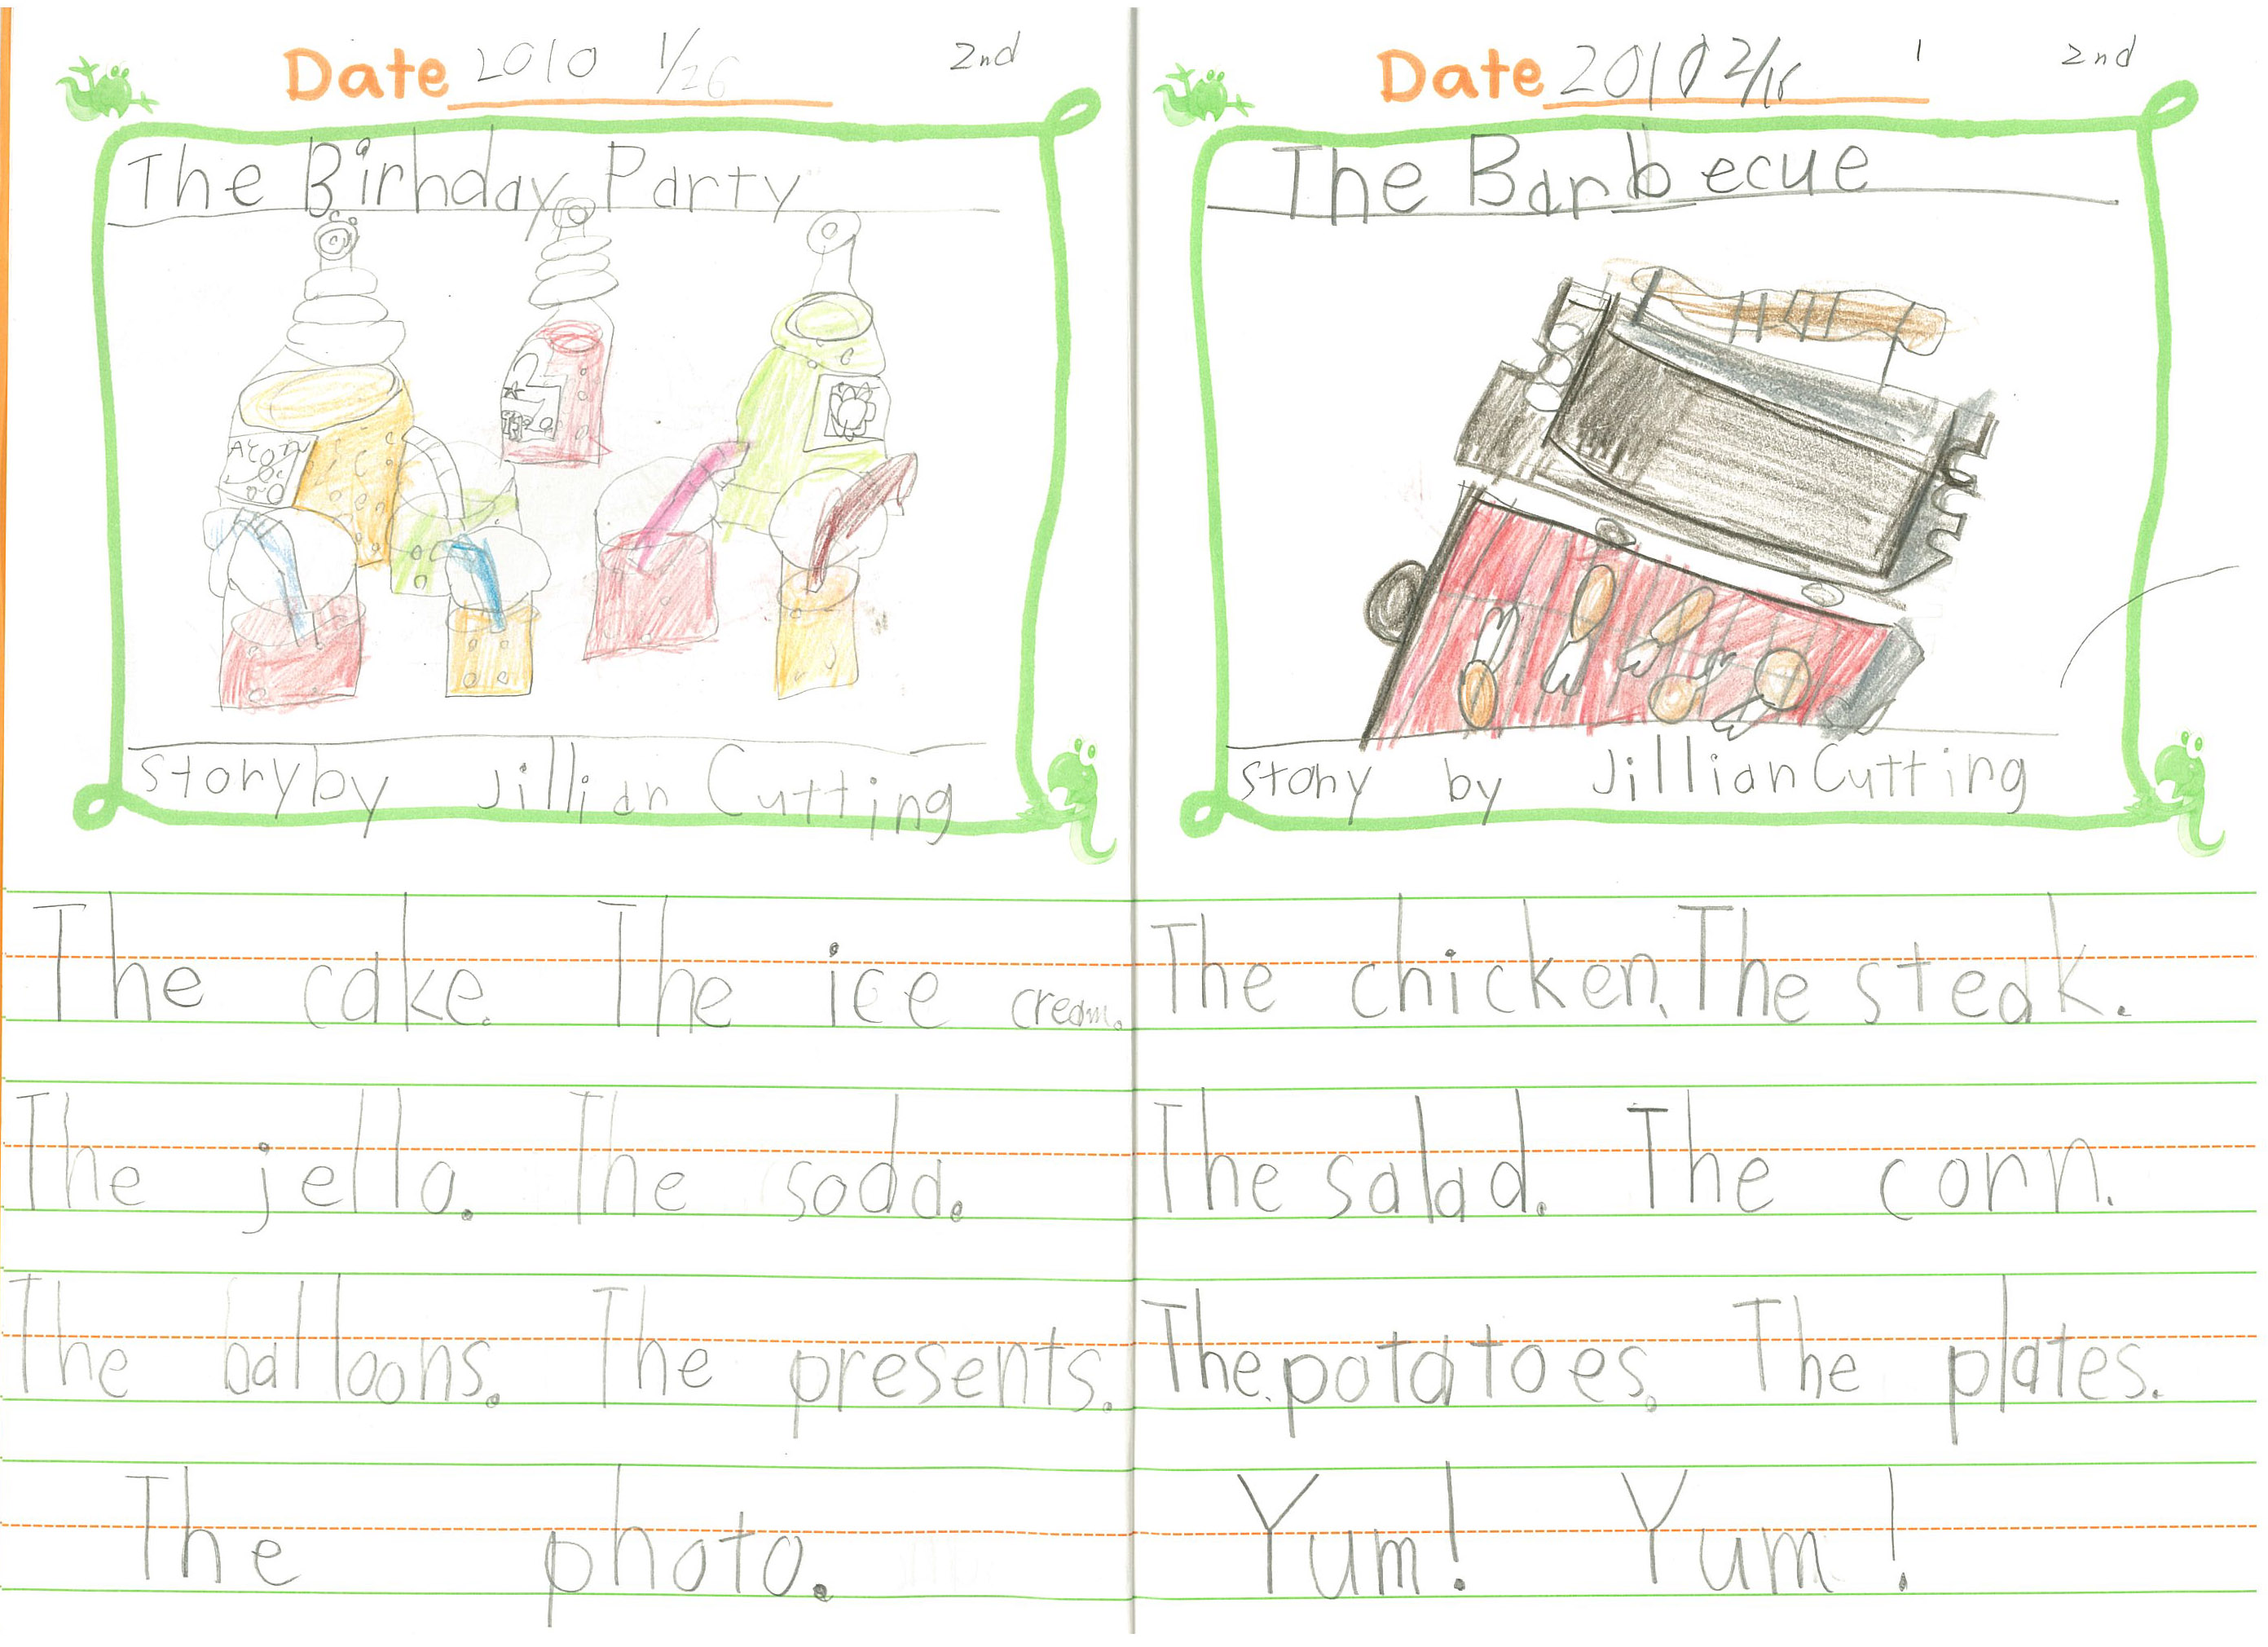 Date 2010 1/26 2nd
The Birhday Party
Acorn
story by Jillian Cutting
The cake. The ice cream.
The jella. The soda.
The balloons. The presents.
The photo.
Date 2010 2/16 1 2nd
The Barbecue
story by Jillian Cutting
The chicken. The steak.
The salad. The corn.
The potatoes. The plates.
Yum! Yum!